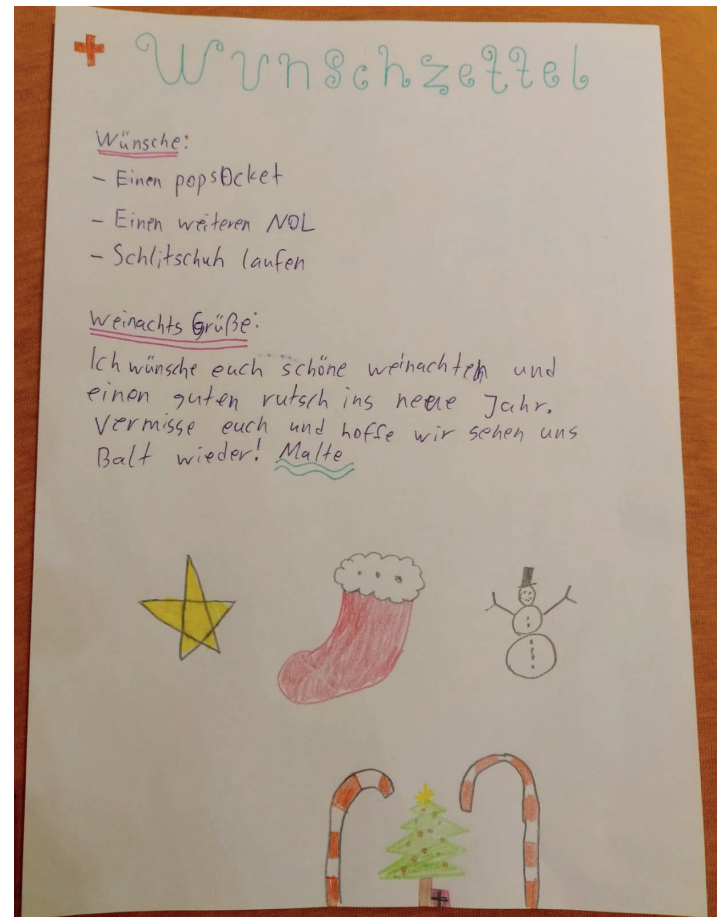 Wunschzettel
Wünsche:
- Einen popsocket
- Einen weiteren NOL
- Schlitschuh laufen
Weinachts Grüße:
Ich wünsche euch schöne weinachten und
einen guten rutsch ins neue Jahr.
Vermisse euch und hoffe wir sehen uns
Balt wieder! Malte